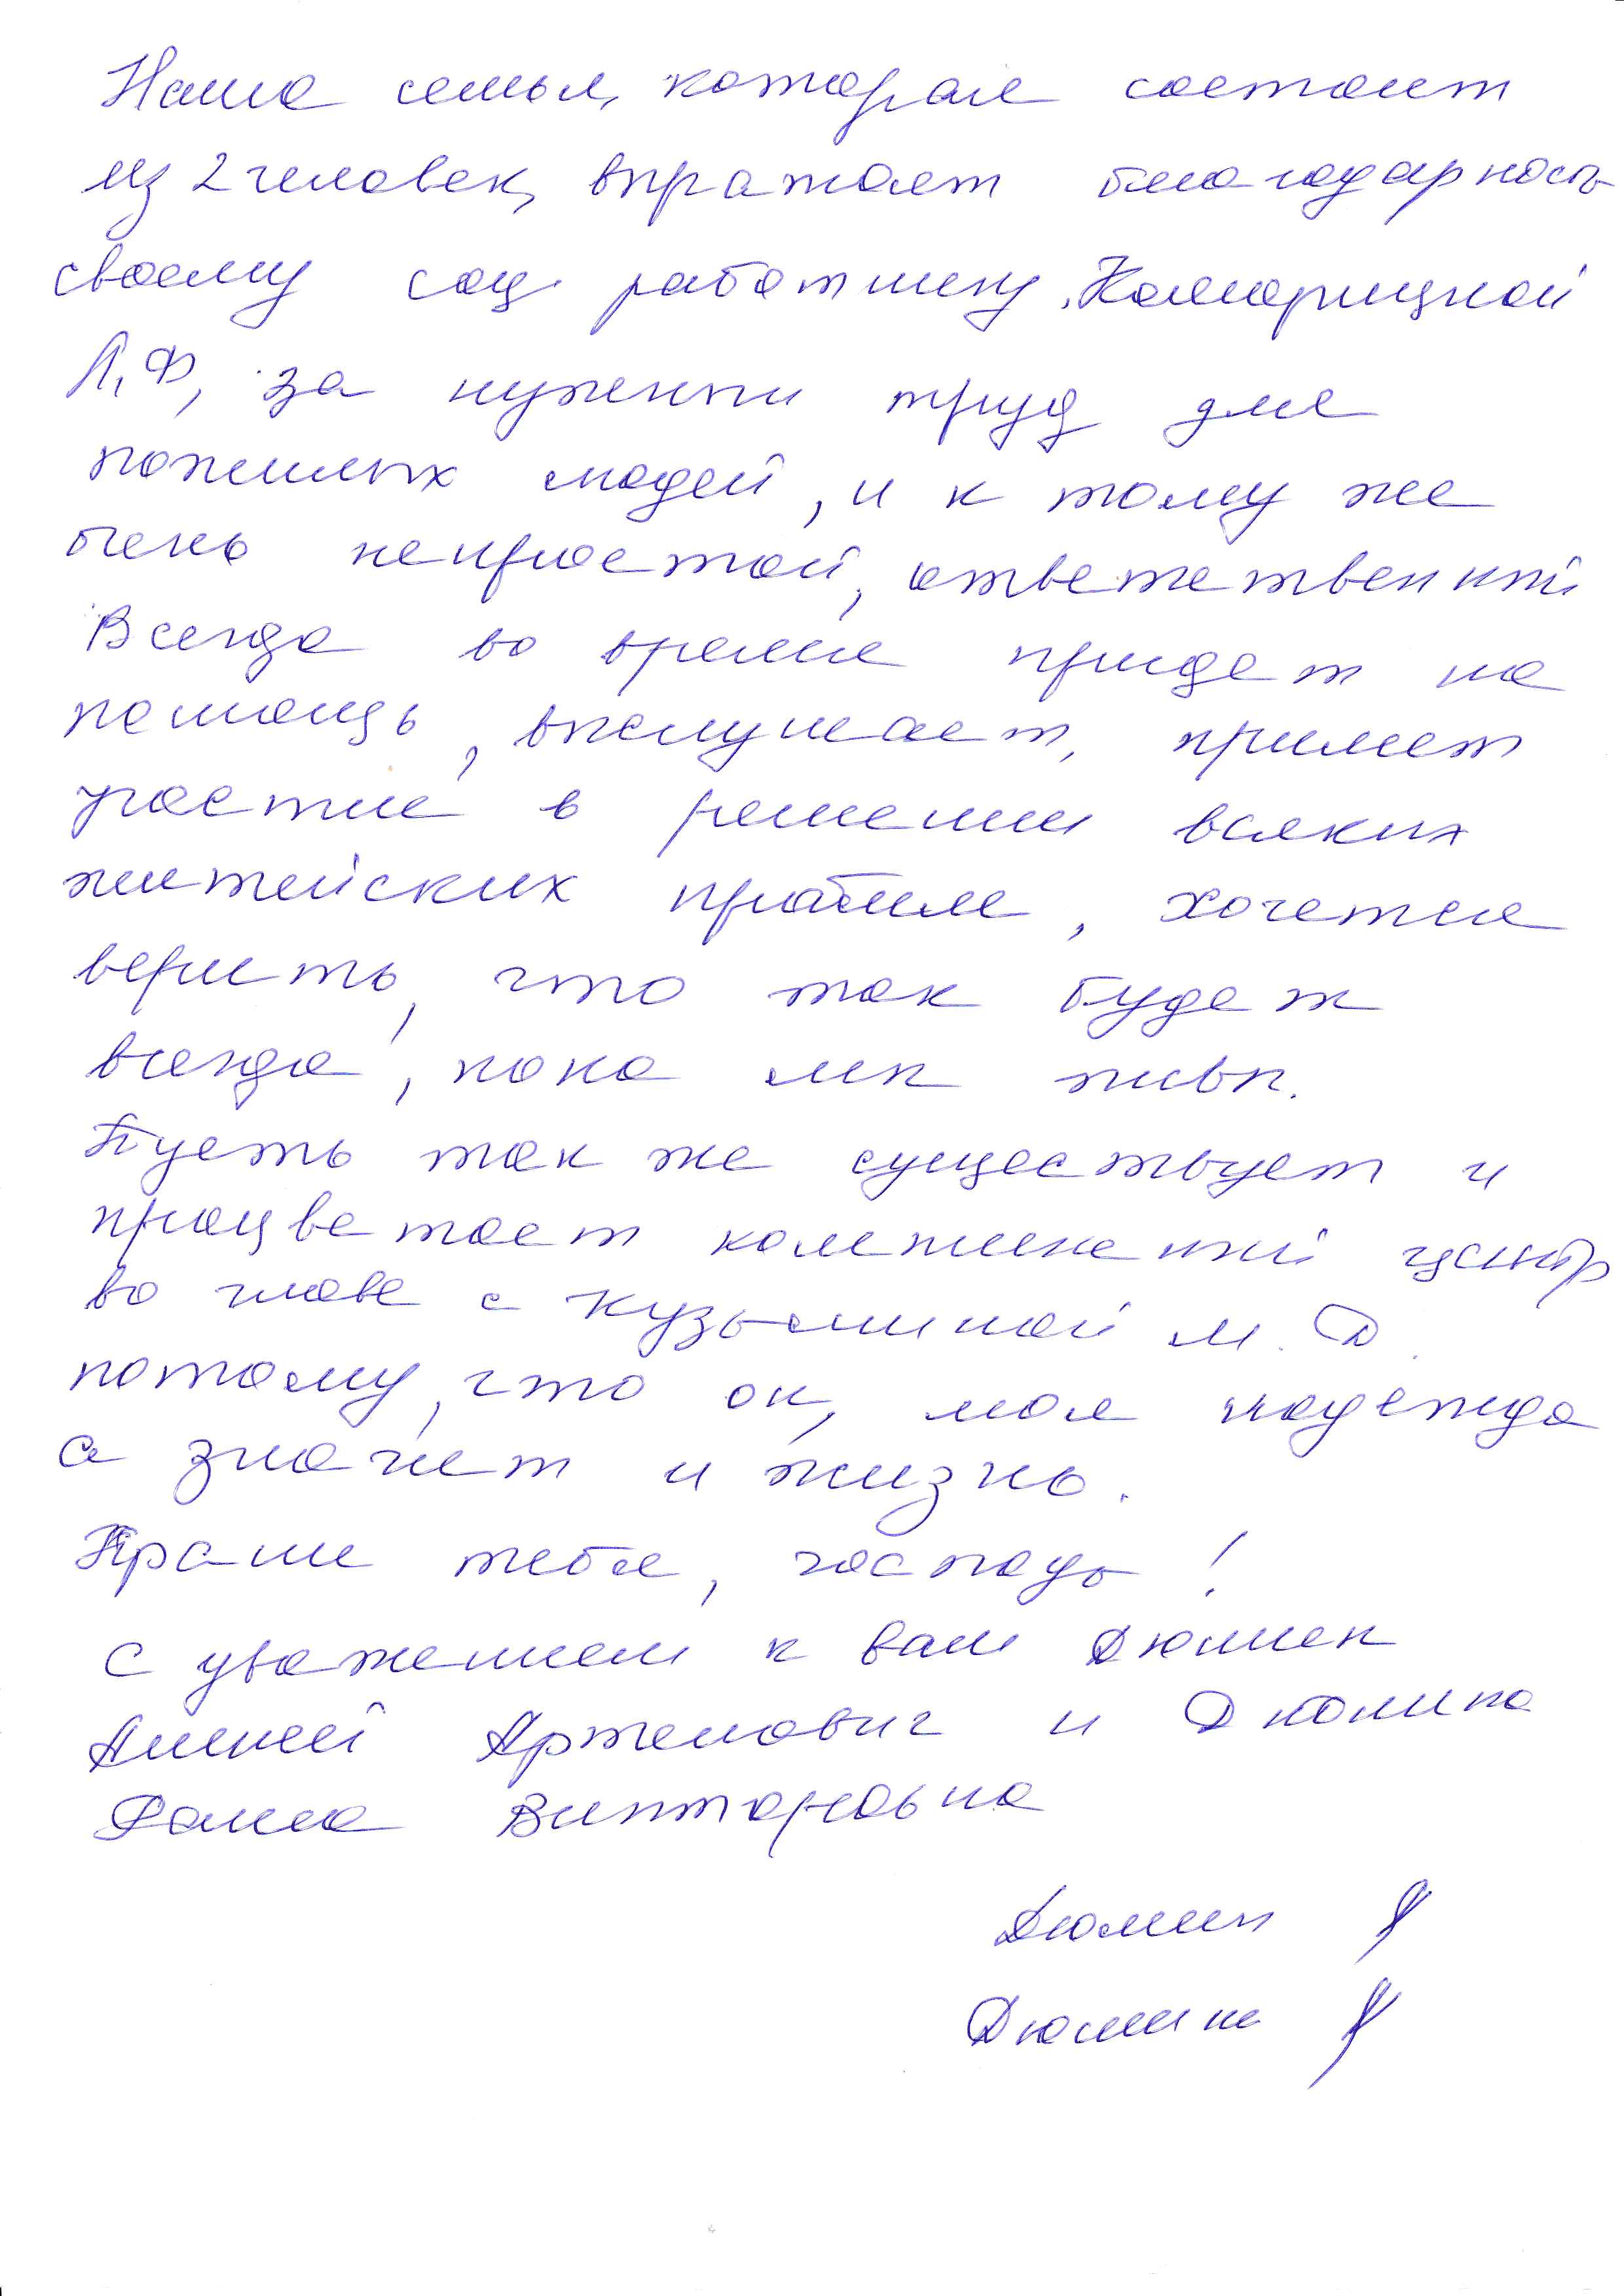 Наша семья, которая состоит
из 2 человек, выражает благодарность
своему соц. работнику Каморицкой
Л, Ф, за нужный труд для
пожилых людей, и к тому же
очень непростой, ответственный
Всегда во время придет на
помощь, выслушает, примет
участие в решении всяких
житейских проблем, хочется
верить, что так будет
всегда, пока мы живы.
Пусть так же существует и
процветает комплексный центр
во главе с Кузьминой М. Д.
потому, что он, моя надежда
а значит и жизнь.
Храни тебя, господь!
С уважением к вам Дюмин
Алексей Артемович и Дюмина
Раиса Викторовна
Дюмин
Дюмина